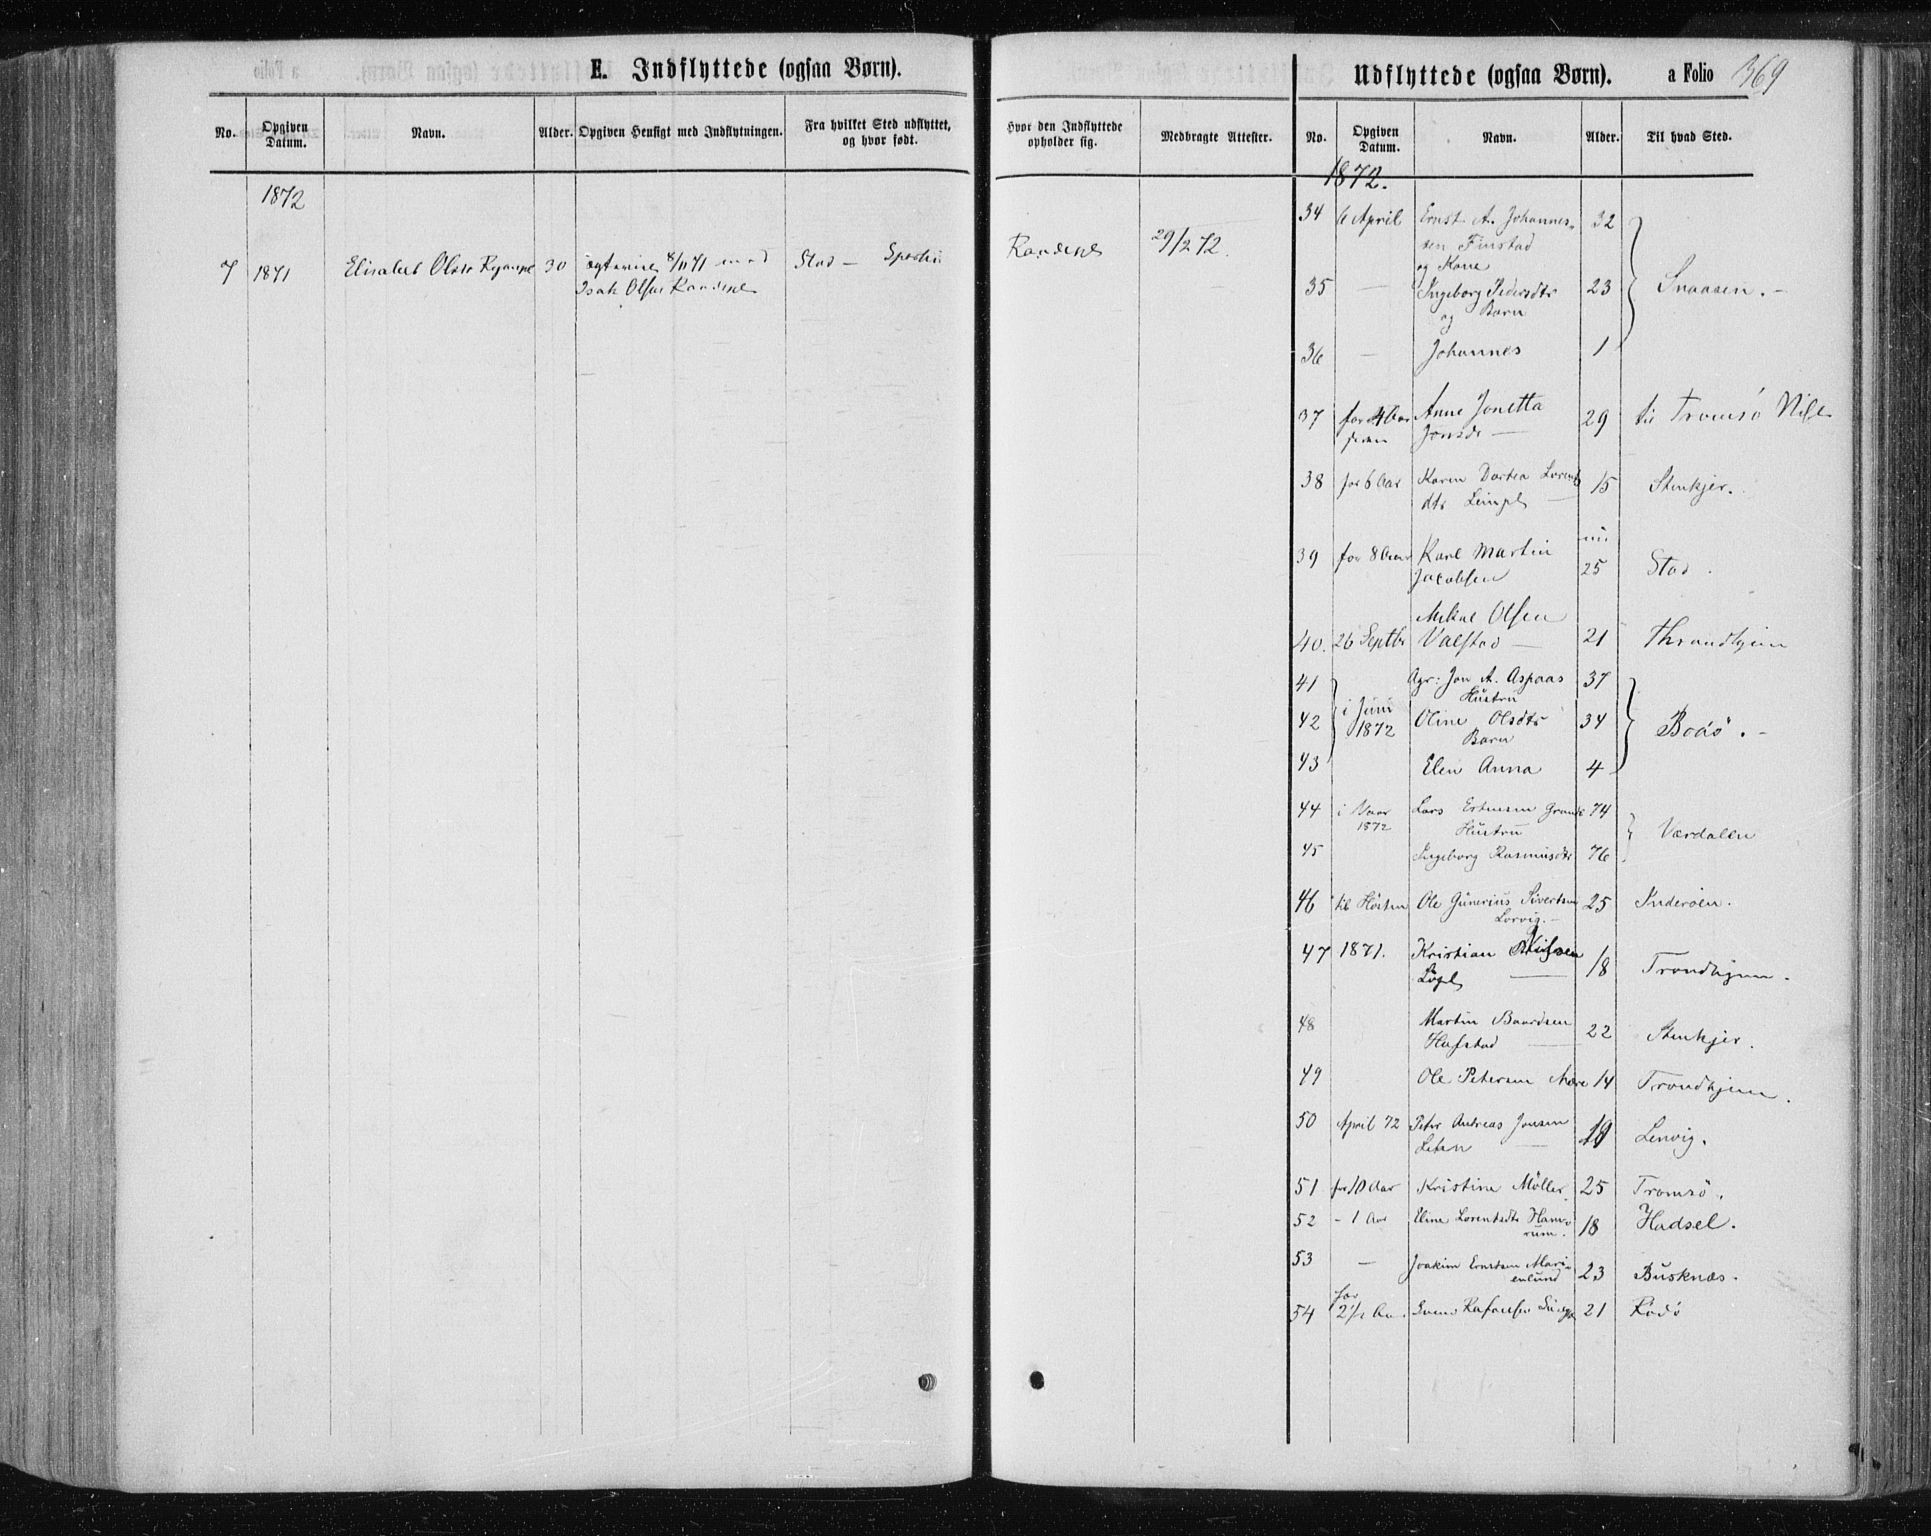 E. Indflyttede (ogsaa Børn).
No.
Opgiven Datum.
Navn.
Alder.
Opgiven Hensigt med Indflytningen.
Fra hvilket Sted udflyttet, og hvor født.
1872
7 1871 Elisabet Olsdr 30 8/11 71 med Stod —
Isak Olsen
Hvor den Indflyttede opholder sig.
Medbragte Attester.
29/2 72.
Udflyttede (ogsaa Børn). a Folio 369
No.
Opgiven Datum.
Navn.
Alder.
Til hvad Sted.
1872.
34 6 April Ernst A. Johannes- 32
sen Finstad
og Kone
35 — Ingeborg Pedersdtr 23 Snaasen. —
og Barn
36 — Johannes 1
37 for 4 Aar Anne Jonetta 29 til Tromsö
siden Jonsdr —
38 for 6 Aar Karen Dortea Lorents 15 Stenkjer.
dtr
39 for 8 Aar Karl Martin nu
Jacobsen 25 Stod.
Mikal Olsen
40. 26 Septbr Valstad — 21 Throndhjem
41 Agr: Jon A. Aspaas 37
i Juni Hustru
42 1872 Oline Olsdtr 34 Bodö. —
Barn
43 Elen Anna 4
44 i Vaar Lars Estensen Grande 74
1872 Hustru Værdalen
45 Ingeborg Rasmusdtr 76
46 til Hösten Ole Gunerius Sivertsen 25 Inderöen.
Lorvig. —
47 1871. Kristian Nilssen 18 Trondhjem.
48 Martin Baardsen 22 Stenkjer.
Hafstad —
49 Ole Petersen Mære 14 Trondhjem.
50 April 72 Peter Andreas Jonsen 19 Lenvig.
51 for 10 Aar Kristine Möller 25 Tromsö.
52 - 1 Aar Eline Lorentsdtr Ham- 18 Hadsel.
rum.
53 — Joakim Ernstsen Mari- 23 Busknæs.
enlund
for
54 2 1/2 Aar 21 Rödö